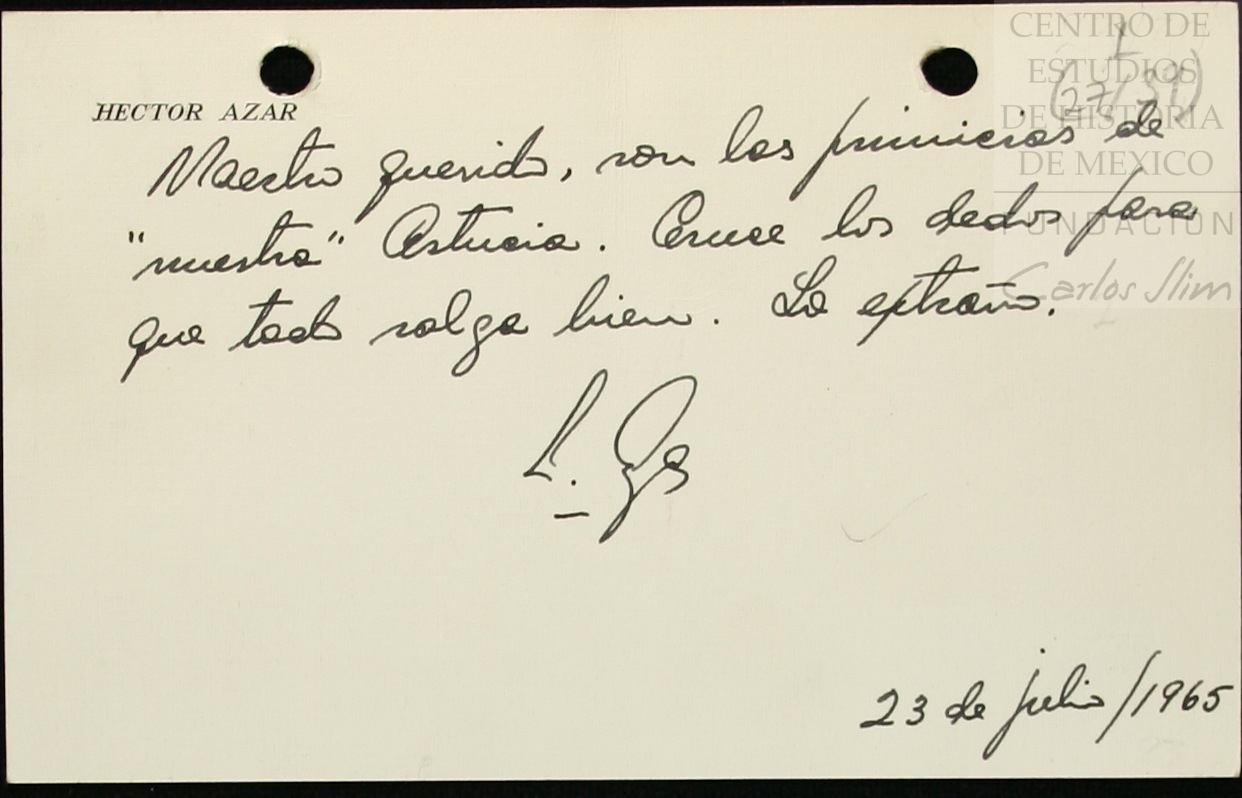 CENTRO DE
ESTUDIOS
DE HISTORIA
DE MEXICO
FUNDACION
Carlos Slim
(27/39)
HECTOR AZAR
Maestro querido, son las primicias de
"nuestra" Astucia. Cruce los dedos para
que todo salga bien. Lo extraño.
23 de julio/1965